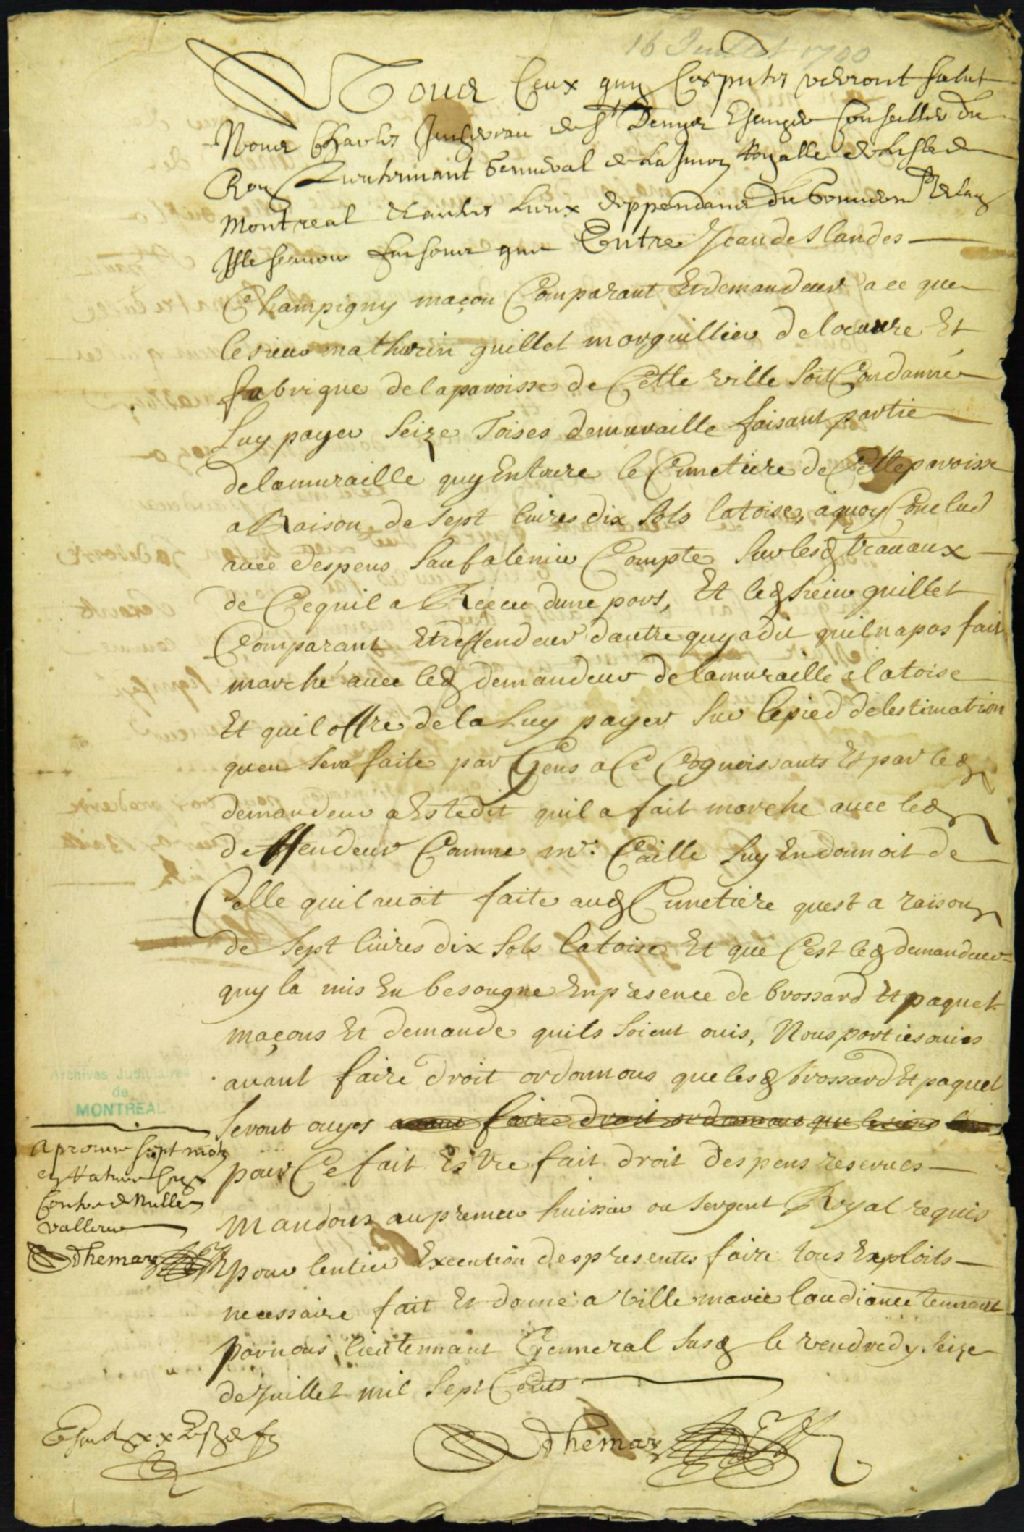 16 Juillet 1700
A Tous Ceux quy Ces pntes verront salut
Nous Charles Juchereau de St Denys Escuyer Conseiller du
Roy Lieutennant Genneral de La Juron Royalle de Lisle de
Montreal Et autres Lieux deppendans du Gouvernt de lad
Isle scavoir faisons que Entre Jean deslandes
Champigny maçon Comparant Et demandeur a ce que
le sieur mathurin guillet marguillier de loeuvre Et
fabrique de la paroisse de Cette ville soit Condamné
Luy payer Seize Toises de muraille faisant partie
de la muraille quy Entoure le Cimetiere de Cette paroisse
a Raison de sept livres dix sols la toise, a quoy Conclud
avec despens sauf a tenir Compte sur lesd travaux
de Ce quil a Receu dune part, Et led sieur guillet
Comparant Et deffendeur dautre quy a dit quil na pas fait
marché avec led demandeur de la muraille a la toise
Et quil offre de la luy payer sur le pied de lestimation
quen sera faite par Gens a Ce Cognoissants Et par led
demandeur a Este dit quil a fait marche avec led
deffendeur Comme mr. Caille luy En donnoit de
Celle quil avoit faite aud Cimetiere quest a raison
de sept livres dix sols la toise Et que Cest led demandeur
quy la mis En besongne En presence de brossard Et paquet
maçons Et demande quils soient ouis, Nous parties ouies
avant faire droit ordonnons que lesd brossard Et paquet
seront ouyes avant faire droit ordonnons que
pour Ce fait Estre fait droit despens reservés
Mandons au premier huissier ou sergent Royal requis
pour lentiere Execution des presentes faire tous Exploits
necessaire fait Et donné a Ville marie laudiance tennant
par nous Lieutennant Genneral susd le vendredy seize
de Juillet mil sept Cents
Archives Judiciaires
de
MONTREAL
Aprouve sept motz
Contre de Nulle
valleur
Adhemar
Adhemar